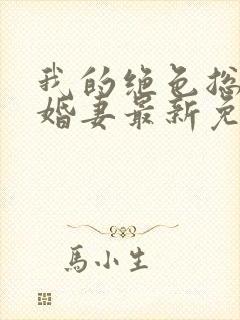 我的绝色总
婚妻最新免
馬小生